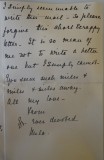 I simply seem unable to
write this mail - so please
forgive this short scrappy
letter. It is so mean of
me not to write a better
one but I simply cannot.
You dear such miles &
miles & miles away.
All my love -
From
Yr ever devoted